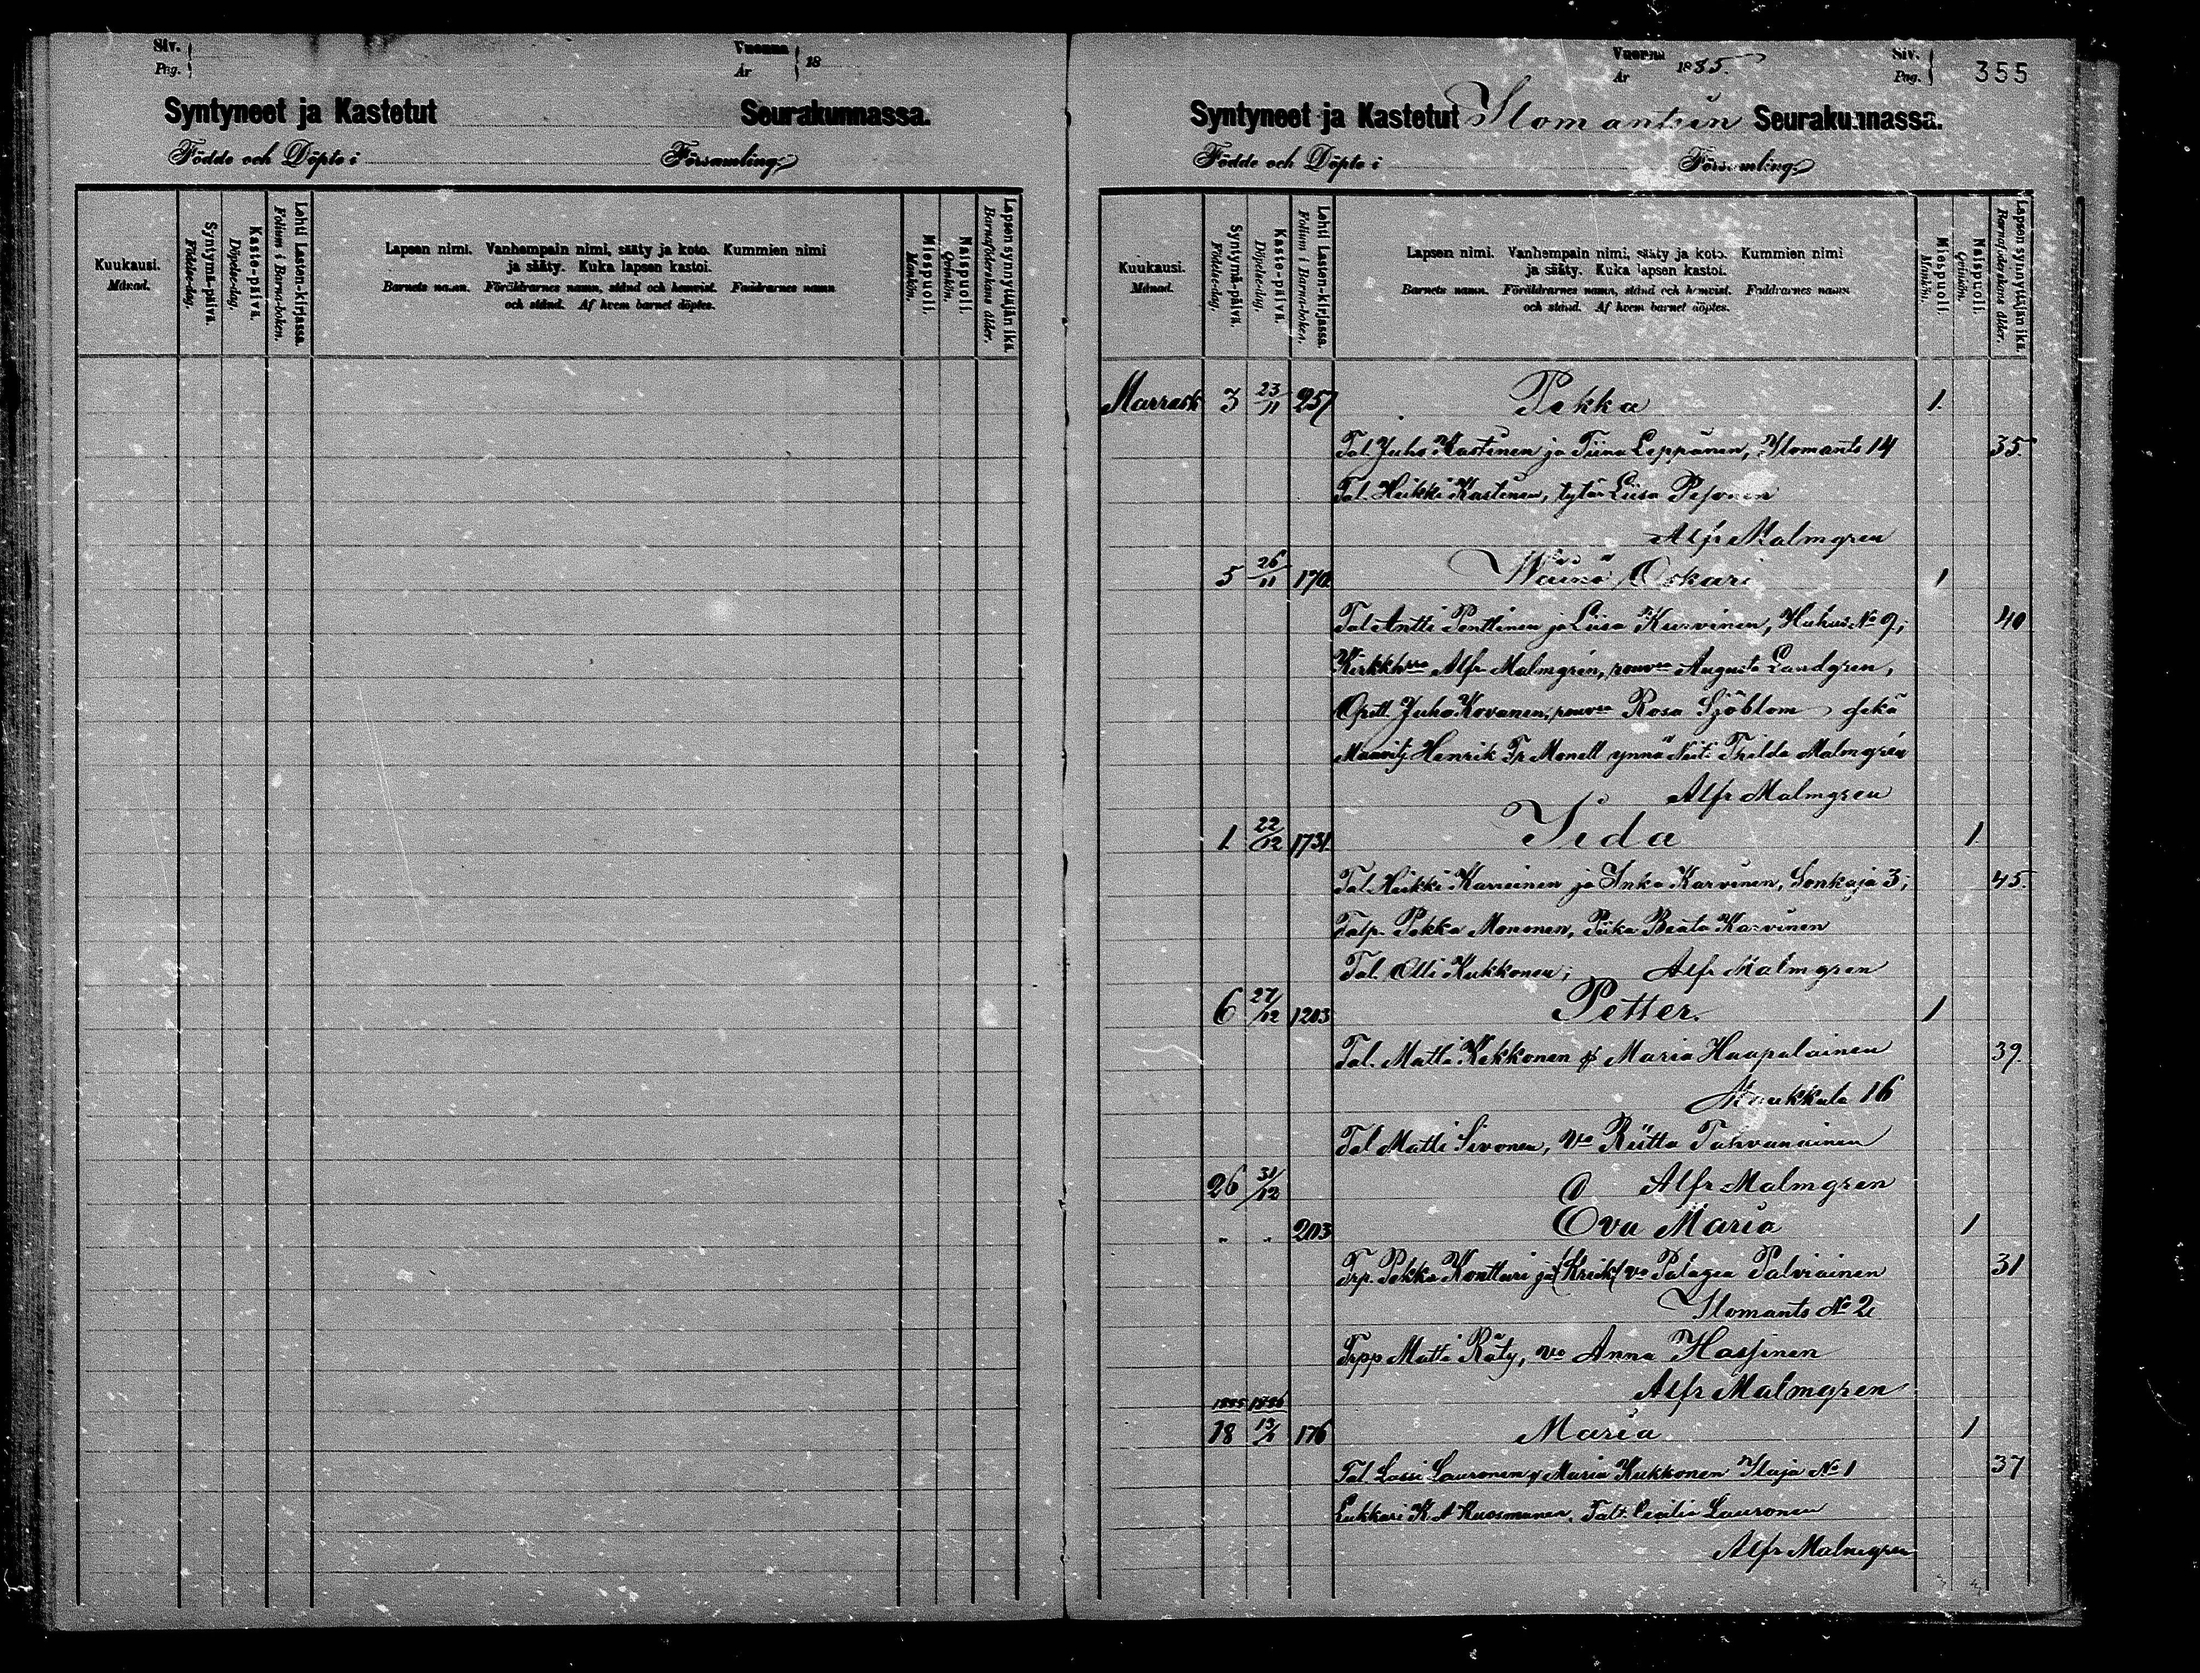 Siv.
Pag.
Vuonna
År
18
Syntyneet ja Kastetut Seurakunnassa.
Födde och Döpte i Församling.
Kuukausi.
Månad.
Syntymä-päivä.
Födelse-dag.
Kaste-päivä.
Döpelse-dag.
Lehti Lasten-kirjassa.
Folium i Barna-boken.
Lapsen nimi. Vanhempain nimi, sääty ja koto. Kummien nimi
ja sääty. Kuka lapsen kastoi.
Barnets namn. Föräldrarnes namn, stånd och hemvist. Faddrarnes namn
och stånd. Af hvem barnet döptes.
Miespuoli.
Mankön.
Naispuoli.
Qvinkön.
Lapsen synnyttäjän ikä.
Barnaföderskans ålder.
Vuonna
År
1885.
Siv.
Pag.
355
Syntyneet ja Kastetut Ilomantsin Seurakunnassa.
Födde och Döpte i Församling.
Kuukausi.
Månad.
Syntymä-päivä.
Födelse-dag.
Kaste-päivä.
Döpelse-dag.
Lehti Lasten-kirjassa.
Folium i Barna-boken.
Lapsen nimi. Vanhempain nimi, sääty ja koto. Kummien nimi
ja sääty. Kuka lapsen kastoi.
Barnets namn. Föräldrarnes namn, stånd och hemvist. Faddrarnes namn
och stånd. Af hvem barnet döptes.
Miespuoli.
Mankön.
Naispuoli.
Qvinkön.
Lapsen synnyttäjän ikä.
Barnaföderskans ålder.
Marrask 3 23/11 257 Pekka 1.
Tal. Juho Kastinen ja Tiina Leppänen, Ilomants 14 35.
Tal. Heikki Kastinen, tytär Liisa Pesonen
Alfr Malmgren
5 26/11 170 Wäinö Oskari 1
Tal Antti Penttinen ja Liisa Kurvinen, Huhus No 9; 40
Kirkkhrra Alfr Malmgrén, rouvsa Augusta Landgren,
Opett. Juho Kovanen, rouvsa Rosa Sjöblom sekä
Maavilj Henrik Fr Monell ynnä Neiti Thilda Malmgrén
Alfr Malmgren
1. 22/12 1731. Iida 1.
Tal. Heikki Karvinen ja Inka Karvinen, Sonkaja 3; 45.
Talp. Pekka Mononen, Piika Beata Karvinen
Tal. Olli Kukkonen; Alfr Malmgren
6 27/12 1203 Petter. 1
Tal. Matti Kekkonen & Maria Haapalainen 39.
Maukkula 16
Tal Matti Sivonen, vo Riitta Tahvanainen
26 31/12 Alfr Malmgren
" " 203 Eva Maria 1
Trp. Pekka Konttari ja (Kreik) vo Palagea Palviainen 31
Ilomants No 2.
Trpp Matti Räty, vo Anna Hassinen
Alfr Malmgren
1885 1886
18 13/1 176 Maria 1
Tal Lassi Lauronen & Maria Kukkonen Ilaja No 1 37
Lukkari K A Kuosmanen, Talt. Cecilia Lauronen
Alfr Malmgren